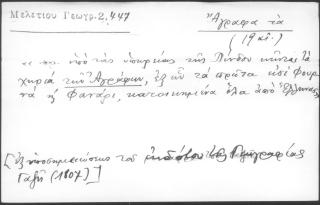 Μελετίου Γεωγρ. 2,447
Ἄγραφα τὰ
(19 αἰ.)
ὑπὸ τὰς ὑπωρείας τῆς Πίνδου κεῖνται τὰ
χωριὰ τῶν Ἀγράφων, ἐξ ὧν τὰ πρῶτα εἰσὶ Φουρ
νά ἢ Φανάρι, κατοικημένα ὅλα ἀπὸ Ἕλληνας
[ἐξ ὑποσημειώσεως τοῦ ἐκδότου τῆς Γεωγραφίας
Γαζῆ (1807)]